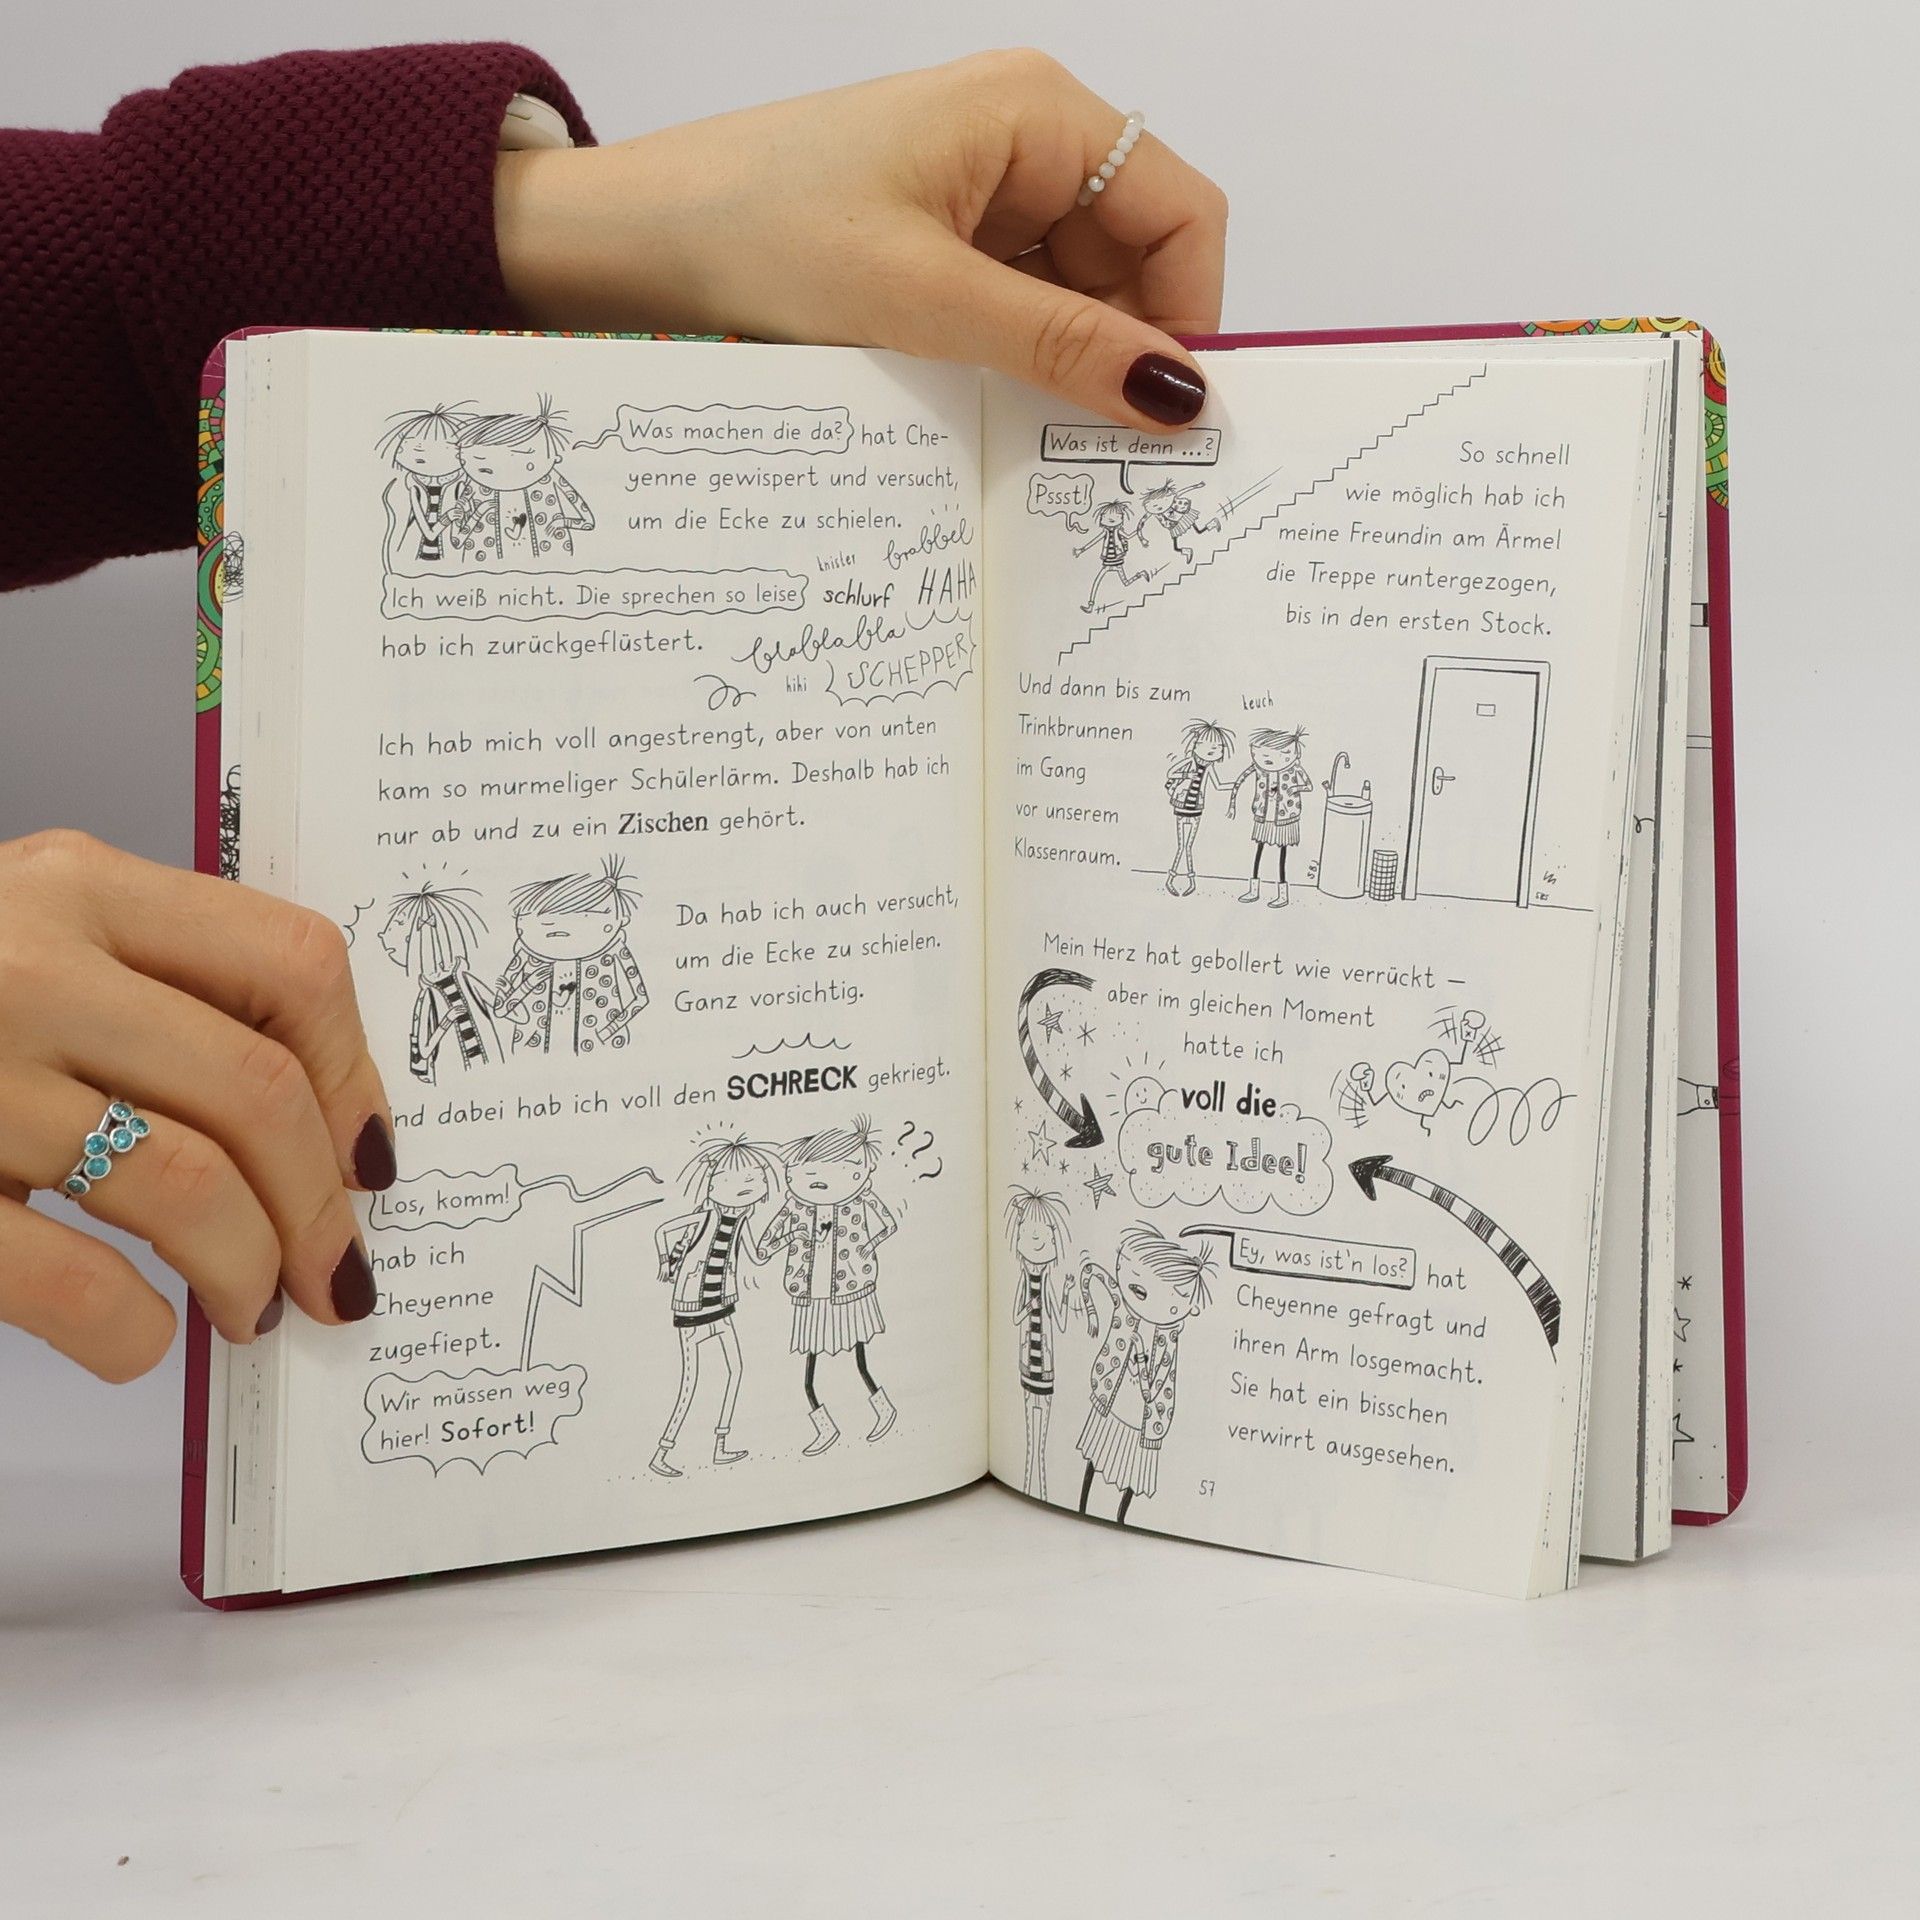 Was machen die da? hat Che-
yenne gewispert und versucht,
um die Ecke zu schielen.
knister brabbel
Ich weiß nicht. Die sprechen so leise schlurf HAHA
hab ich zurückgeflüstert. blablabla
hihi SCHEPPER
Ich hab mich voll angestrengt, aber von unten
kam so murmeliger Schülerlärm. Deshalb hab ich
nur ab und zu ein Zischen gehört.
Da hab ich auch versucht,
um die Ecke zu schielen.
Ganz vorsichtig.
nd dabei hab ich voll den SCHRECK gekriegt.
Los, komm!
hab ich
Cheyenne
zugefiept.
Wir müssen weg
hier! Sofort!
???
Was ist denn ...?
Pssst!
So schnell
wie möglich hab ich
meine Freundin am Ärmel
die Treppe runtergezogen,
bis in den ersten Stock.
Und dann bis zum
Trinkbrunnen
im Gang
vor unserem
Klassenraum.
keuch
Mein Herz hat gebollert wie verrückt –
aber im gleichen Moment
hatte ich
voll die
gute Idee!
Ey, was ist'n los? hat
Cheyenne gefragt und
ihren Arm losgemacht.
Sie hat ein bisschen
verwirrt ausgesehen.
57